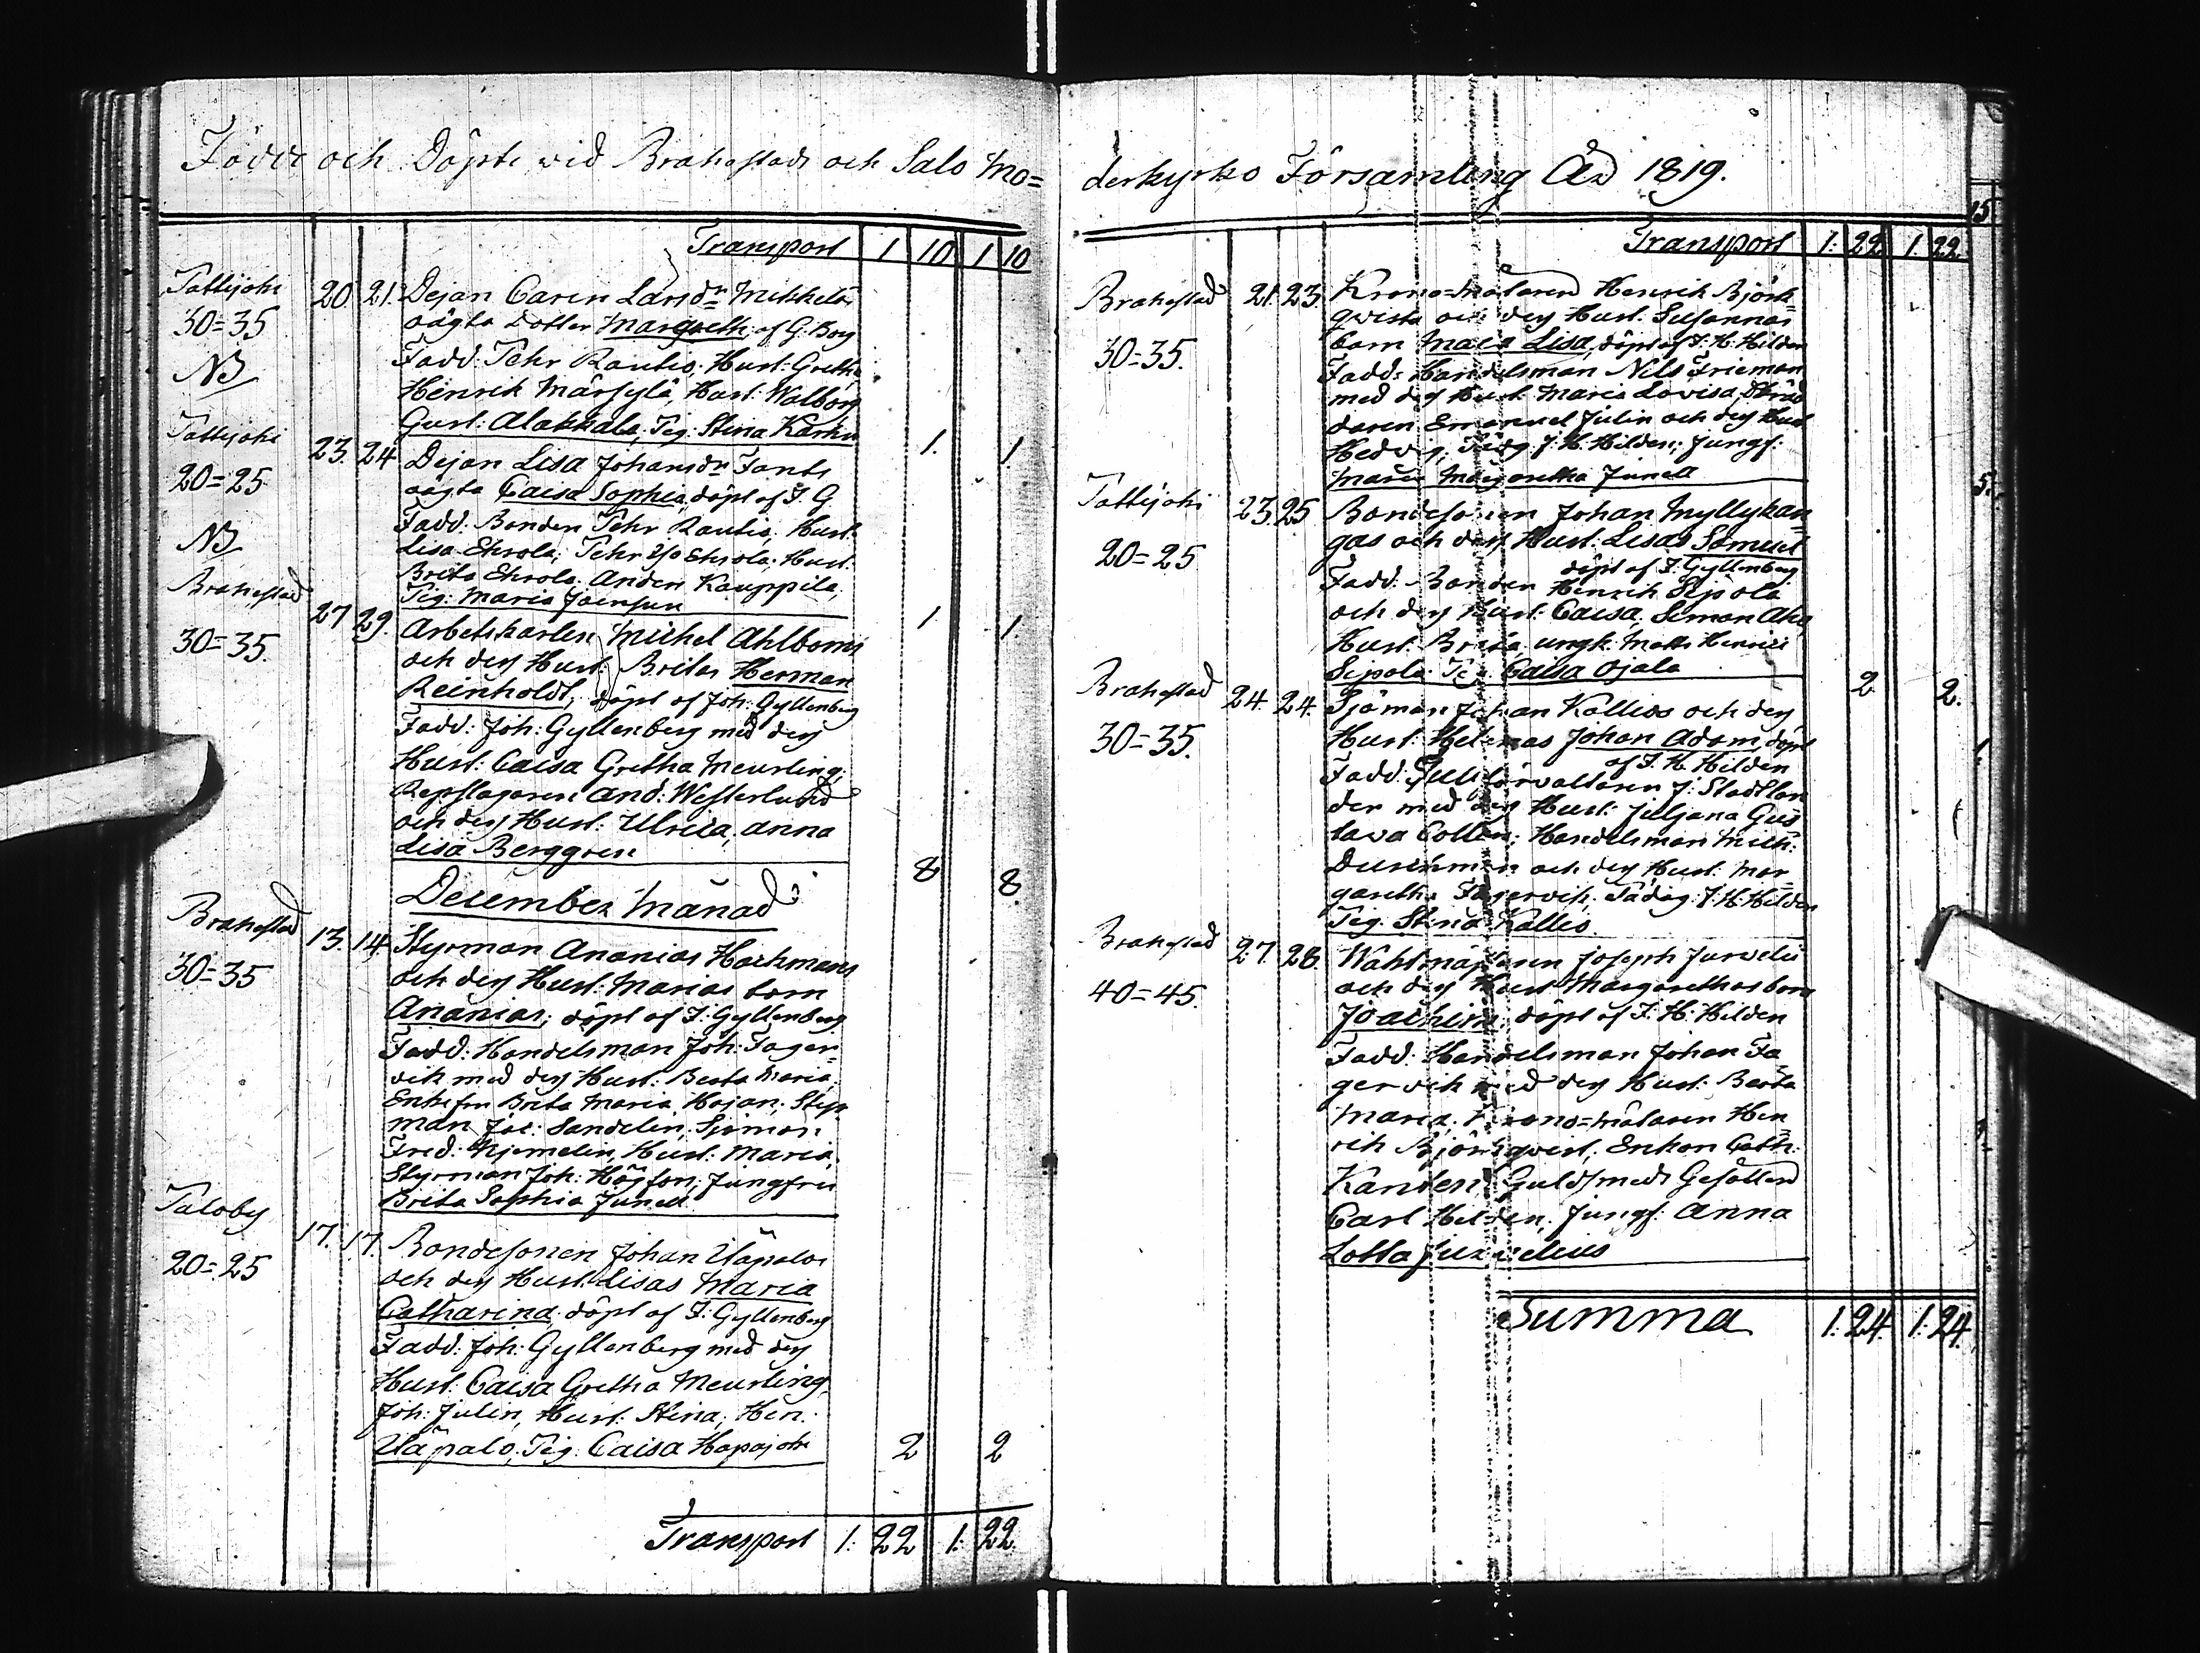 Födde och Döpte wid Brahestads och Salo Mo=
Transport 1 10 1 10
Pattijoki 20 21. Dejan Carin Larsdr Mikkelas
30=35 oägta Dotter Margreth, af G: Borg
NB Fadd: Pehr Rautio, Hust: Gretha,
Henrik Märsylä, Hust: Walborg
Gust: Alakkala, Pig: Stina Karhu 1. 1.
Pattijoki 23. 24 Dejan Lisa Johansdr Fants
20=25 oägta Caisa Sophia, döpt af J. G
NB Fadd: Bonden Pehr Rautio, Hust:
Lisa Ehrola, Pehr Ehrola, Hust:
Brita Ehrola, Anders Kauppila,
Pig: Maria Joensuu 1 1
Brahestad 27 29. Arbetskarlen Michel Ahlboms
30=35. och dess Hust: Britas Herman
Reinholdt, döpt af Joh: Gyllenberg
Fadd: Joh: Gyllenberg med dess
Hust: Caisa Gretha Meurling,
Repslagaren And: Westerlund
och dess Hust: Ulrica, Anna
Lisa Berggren 8 8
December Månad
Brahestad 13. 14. Styrman Ananias Hachmans
30=35 och dess Hust: Marias barn
Ananias; döpt af J: Gyllenberg
Fadd: Handelsman Joh: Fager=
vik med dess Hust: Beata Maria,
Enkefru Brita Maria Hojan, Styr
man Joe: Sandelin, Sjöman
Fred: Hjemelin, Hust: Maria,
Styrman Joh: Högfon, Jungfru
Brita Sophia Junell
Paloby 17. 17. Bondesonen Johan Uapalos
20=25 och dess Hust: Lisas Maria
Catharina, döpt af J: Gyllenberg
Fadd: Joh: Gyllenberg med dess
Hust: Caisa Gretha Meurling,
Joh: Julin, Hust: Stina, Hen:
Uapalo, Pig: Caisa Hapajoki 2 2
Transport 1: 22 1: 22.
derkyrko Församling År 1819.
15
Transport 1: 22. 1. 22.
Brahestad 21. 23. Krono=Målaren Henrik Björk=
30=35. qvists och dess Hust: Susannas
barn Maia Lisa, döpt af J: H: Hilden
Fadd: Handelsman Nils Frieman
med dess Hust: Maria Lovisa, Skräd
daren Emanuel Julin och dess Hust
Hedvig, Pädg: J: H: Hilden, Jungf:
Maria Margaretha Junell
Pattijoki 23. 25. Bondesonen Johan Myllykan
20=25 gas och dess Hust: Lisas Samuel
döpt af J: Gyllenberg
Fadd: Bonden Henrik Sipola
och dess Hust: Caisa, Simon Aho,
Hust: Brita, ungk: Matts Henrics
Sipola, Pig. Caisa Ojala 2 2.
Brahestad 24. 24. Sjöman Johan Kallios och dess
30=35. Hust: Helenas Johan Adam, döpt
af J. H. Hilden
Fadd: Tullförvaltaren J: Stadtlan
der med dess Hust: Juliana Gus
tava Collin; Handelsman Mich:
Duschman och dess Hust: Mar
garetha Fagervik, Pädag: J. H. Hilden
Pig. Stina Kallio
Brahestad 27. 28. Waktmästaren Joseph Jurvelii
40=45. och dess Hust: Margarethas barn
Joachim, döpt af J: H: Hilden
Fadd: Handelsman Johan Fa
gervik med dess Hust: Beata
Maria, Krono=målaren Hen
rik Björkqvist, Enkan Cath:
Kanden, Guldsmeds Gesällen
Carl Hilden, Jungf: Anna
Lotta Jurvelius
Summa 1: 24. 1: 24.